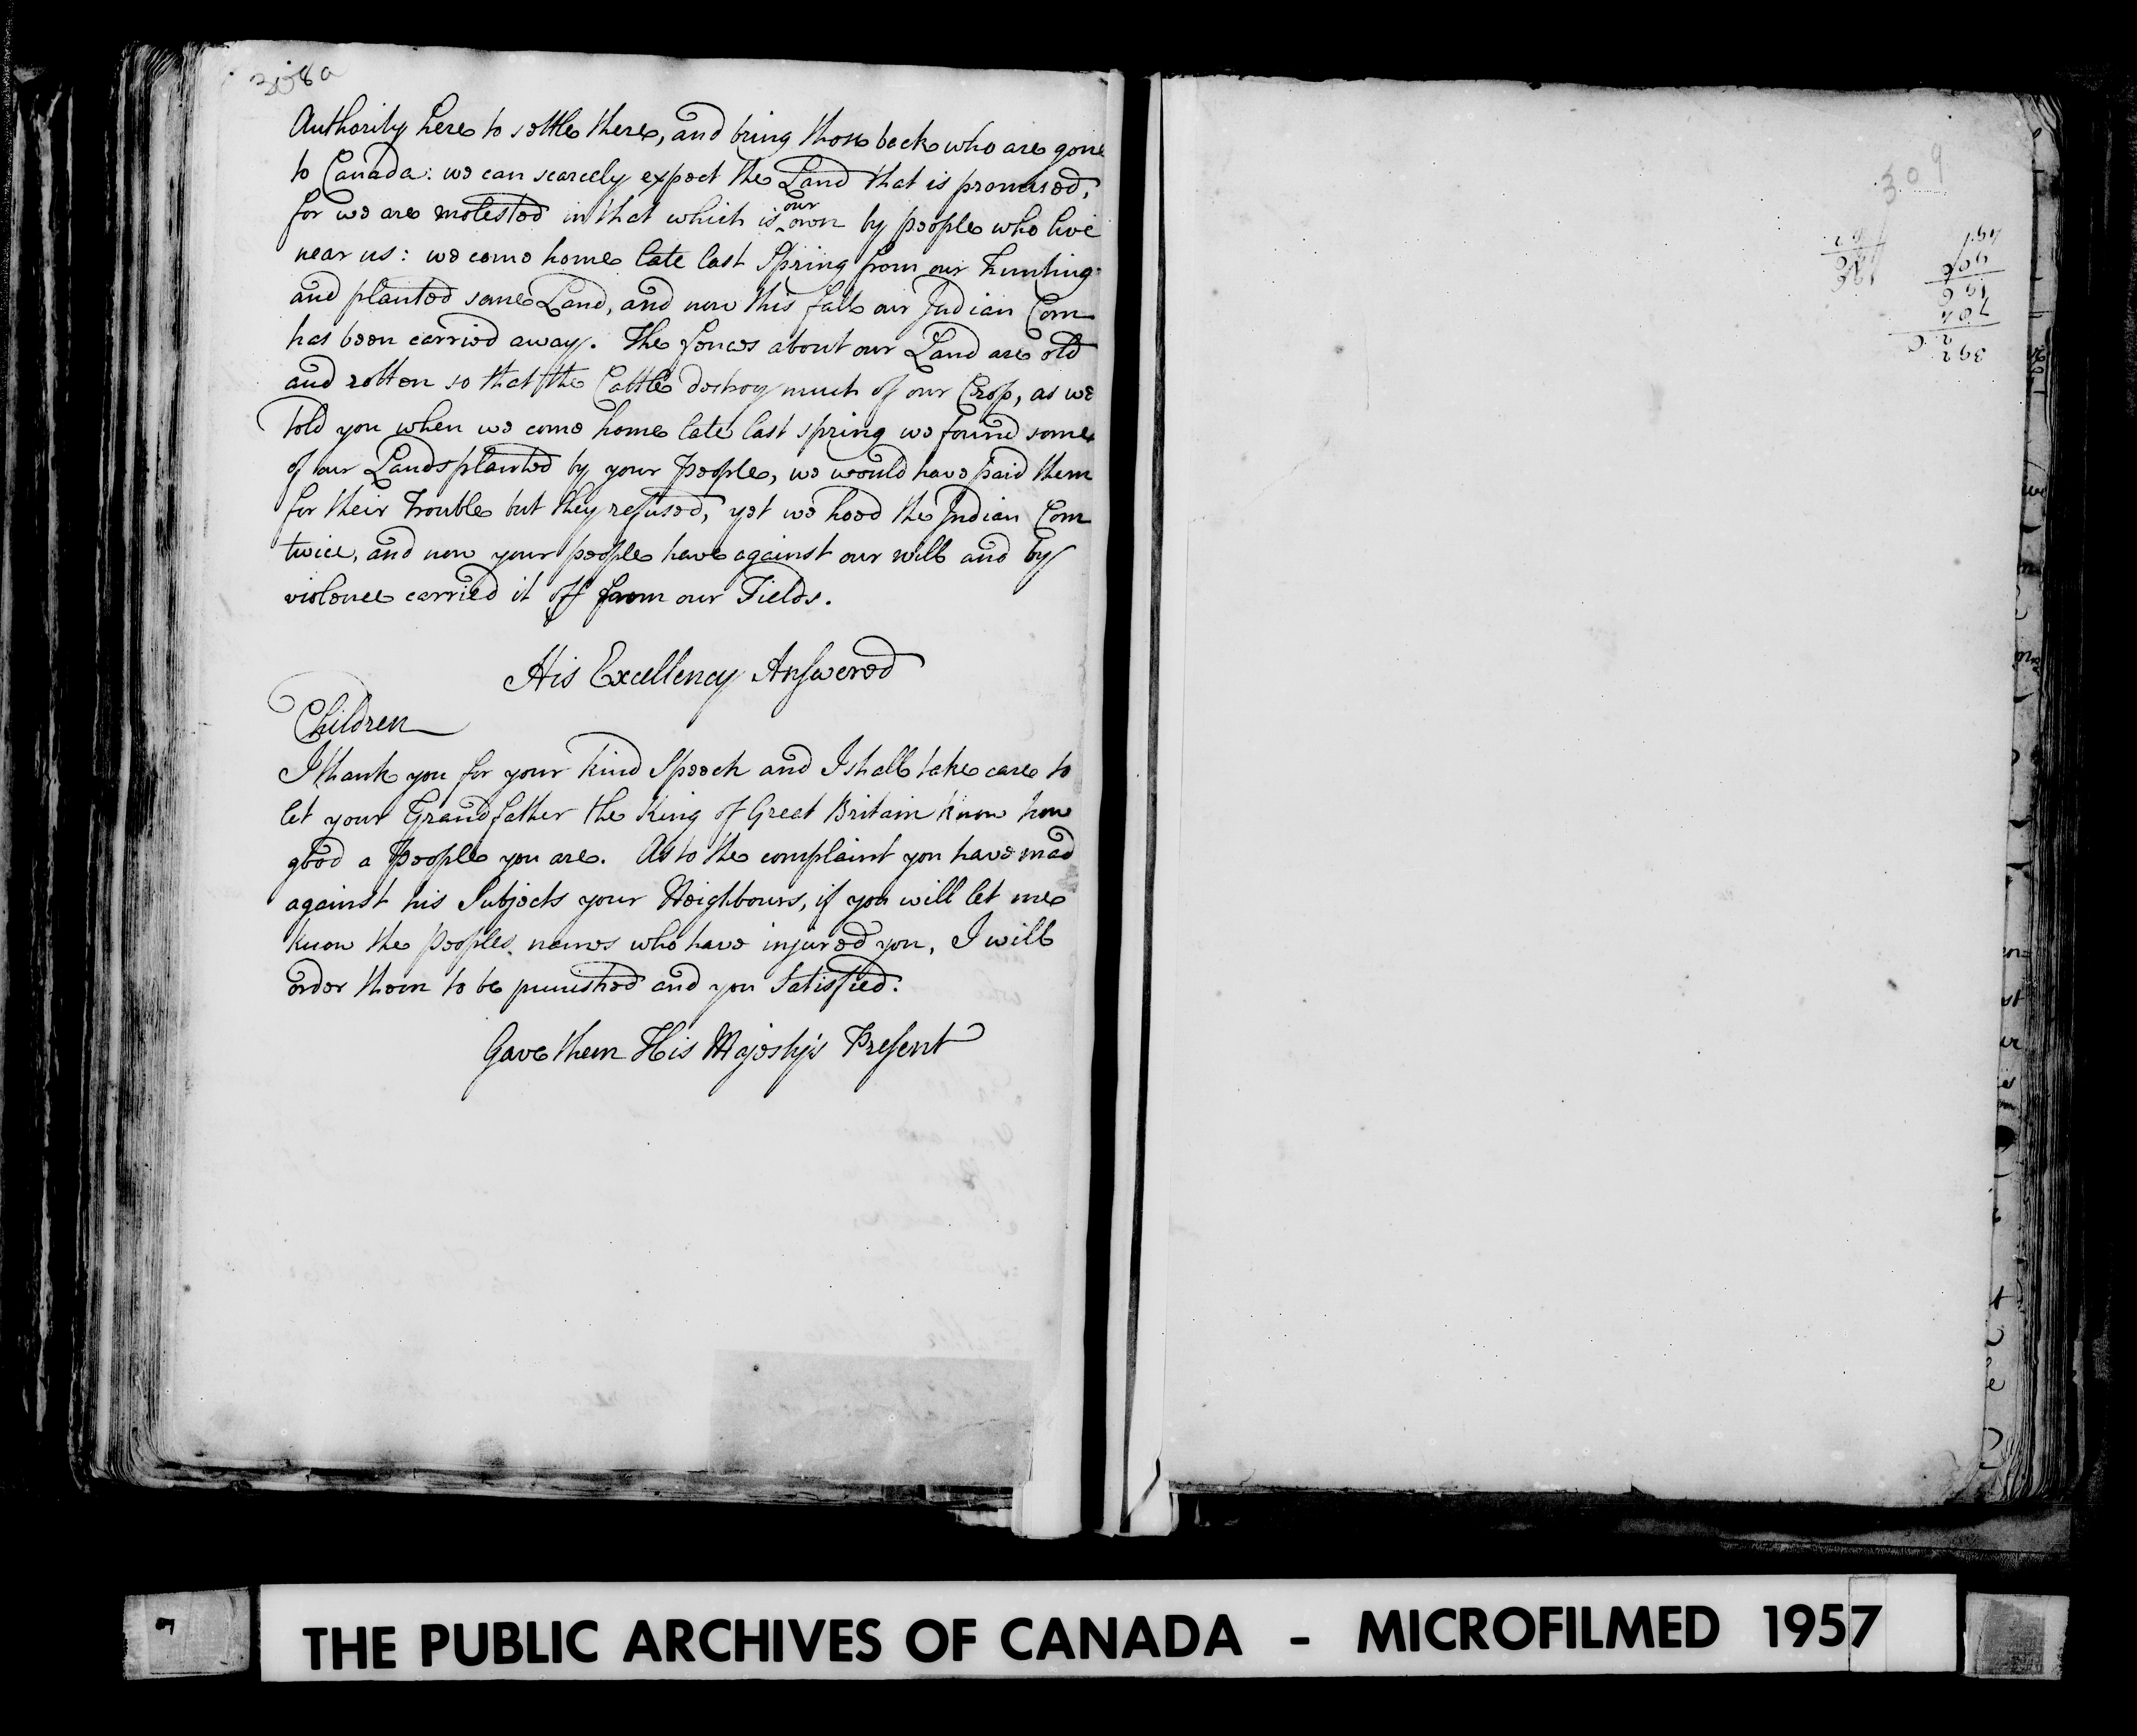 308a
Authority here to settle there, and bring those back who are gone
to Canada: we can scarcely expect the Land that is promised,
for we are molested in that which is our own by people who live
near us: we come home late last Spring from our Hunting
and planted some Land, and now this fall our Indian Corn
has been carried away. The fences about our Land are old
and rotten so that the Cattle destroy much of our Crop, as we
told you when we come home late last spring we found some
of our Lands planted by your People, we would have paid them
for their Trouble but they refused, yet we hoed the Indian Corn
twice, and now your people have against our will and by
violence carried it off from our Fields.
His Excellency Answered
Children
I thank you for your kind Speech and I shall take care to
let your Grandfather the King of Great Britain know how
good a People you are. As to the complaint you have mad
against his Subjects your Neighbours, if you will let me
know the Peoples names who have injured you, I will
order them to be punished and you Satisfied.
Gave them His Majesty's Present
309
392
704
196
THE PUBLIC ARCHIVES OF CANADA - MICROFILMED 1957